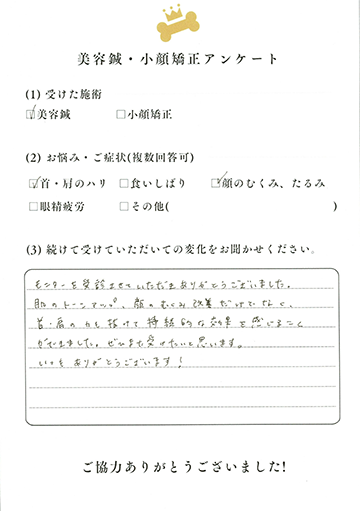 美容鍼・小顔矯正アンケート
(1) 受けた施術
☑美容鍼 □小顔矯正
(2) お悩み・ご症状(複数回答可)
☑首・肩のハリ □食いしばり ☑顔のむくみ、たるみ
□眼精疲労 □その他( )
(3) 続けて受けていただいての変化をお聞かせください。
モニターを受診させていただきありがとうございました。
肌のトーンアップ、顔のむくみ改善だけでなく、
首・肩の力も抜けて持続的な効果を感じること
ができました。ぜひまた受けたいと思います。
いつもありがとうございます!
ご協力ありがとうございました!